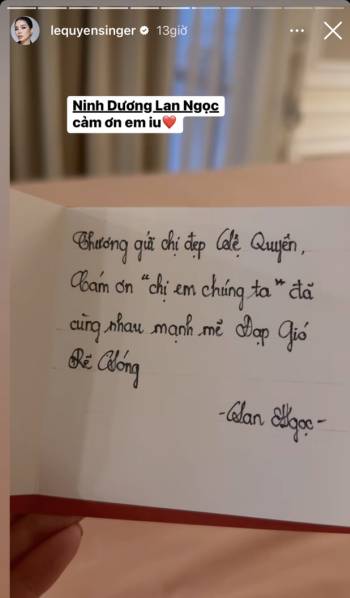 lequyensinger 13giờ
Ninh Dương Lan Ngọc
cảm ơn em iu❤️
Thương gửi chị đẹp Lệ Quyên,
Cám ơn "chị em chúng ta" đã
cùng nhau mạnh mẽ Đạp Gió
Rẽ Sóng
-Lan Ngọc-